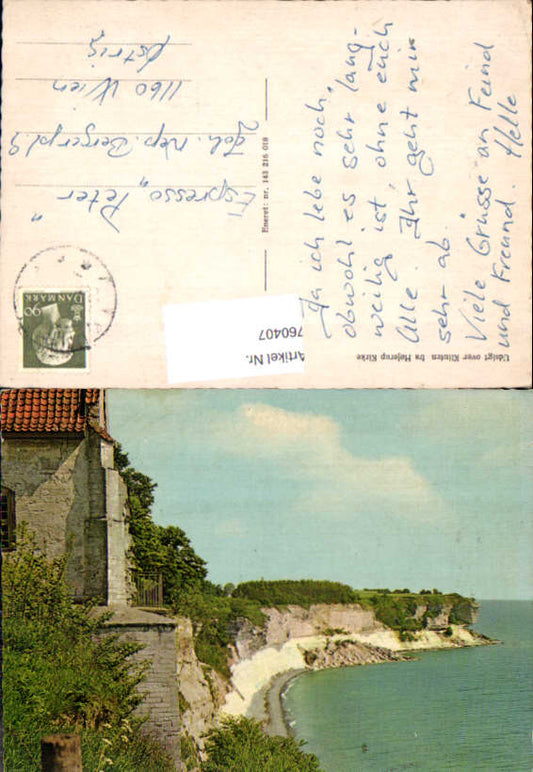 Ja ich lebe noch,
obwohl es sehr lang-
weilig ist, ohne euch
Alle. Ihr geht mir
sehr ab.
Viele Grüsse an Feind
und Freund. Helle
Eneret: nr. 143 216 018
Espresso „Peter“
Joh. Nep. Bergerpl. 9
1160 Wien
Østrig
90
DANMARK
Udsigt over Klinten fra Højerup Kirke
Artikel Nr.
760407